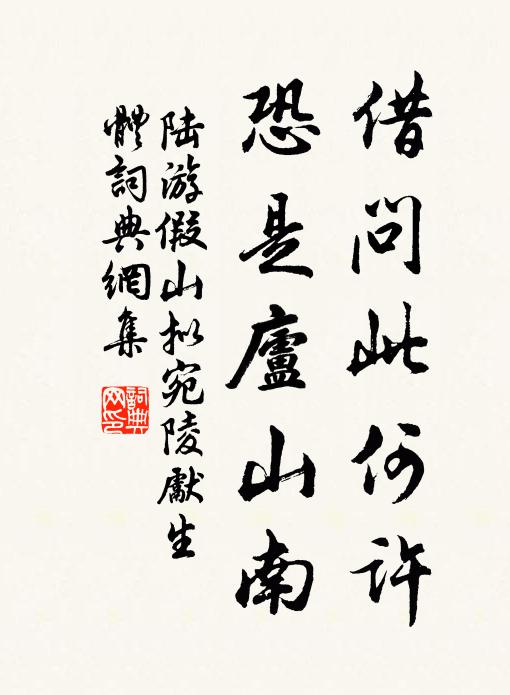 借问此何许
恐是廬山南
陆游假山拟宛陵獻生
體詞典網集
詞典
网印